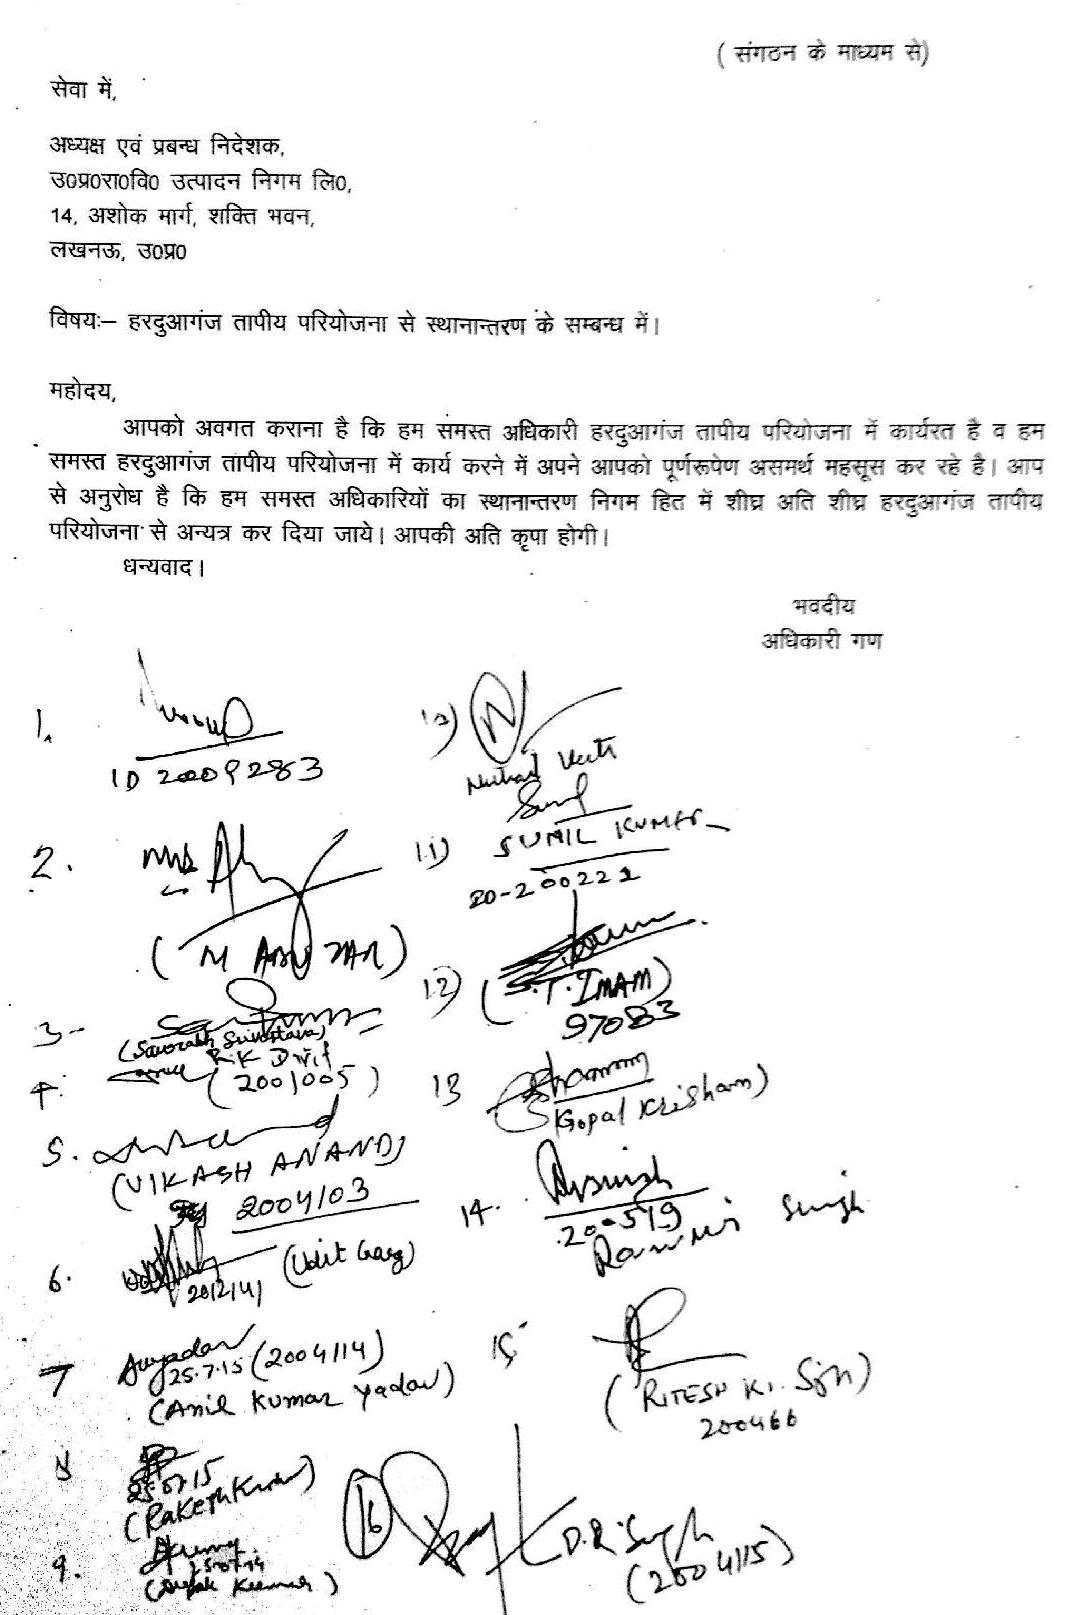 ( संगठन के माध्यम से)
सेवा में,
अध्यक्ष एवं प्रबन्ध निदेशक,
उ0प्र0रा0वि0 उत्पादन निगम लि0,
14, अशोक मार्ग, शक्ति भवन,
लखनऊ, उ0प्र0
विषयः– हरदुआगंज तापीय परियोजना से स्थानान्तरण के सम्बन्ध में।
महोदय,
आपको अवगत कराना है कि हम समस्त अधिकारी हरदुआगंज तापीय परियोजना में कार्यरत है व हम
समस्त हरदुआगंज तापीय परियोजना में कार्य करने में अपने आपको पूर्णरूपेण असमर्थ महसूस कर रहे है। आप
से अनुरोध है कि हम समस्त अधिकारियों का स्थानान्तरण निगम हित में शीघ्र अति शीघ्र हरदुआगंज तापीय
परियोजना से अन्यत्र कर दिया जाये। आपकी अति कृपा होगी।
धन्यवाद।
भवदीय
अधिकारी गण
1.
ID 20009283
2.
(M ABUZAR)
3-
(Saurabh Srivastava)
4.
(2001005)
5.
(VIKASH ANAND)
2004103
6.
(Udit Garg)
2012141
7
25.7.15 (2004114)
(Anil Kumar Yadav)
8
25.07.15
(Rakesh Kumar)
9.
(Deepak Kumar)
10)
11)
SUNIL KUMAR
20-200221
12)
(S.T. IMAM)
97083
13
(Gopal Krisham)
14.
200519
Singh
15
(RITESH Kr.
200466
16
D.R. Singh
(2004115)